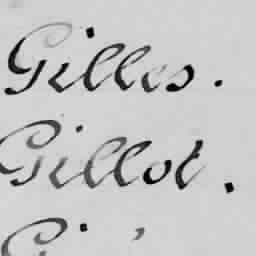 Gilles.
Gillot.